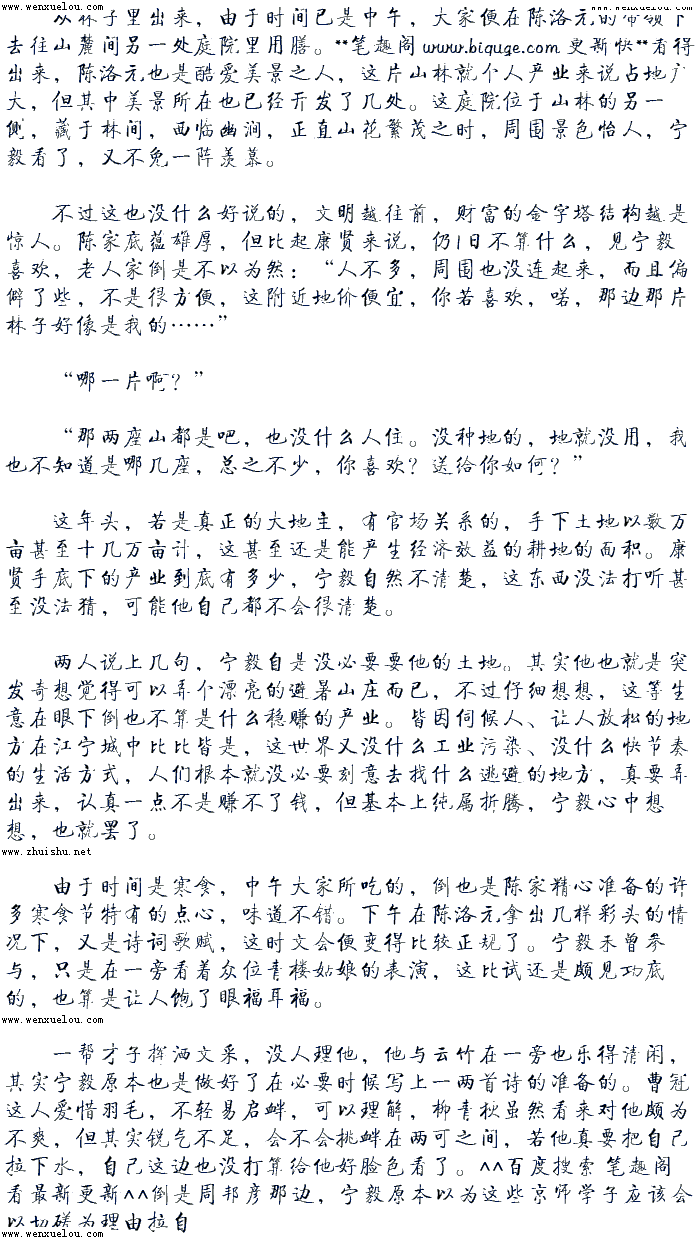 www.wenxuelou.com www.wenxuelou.com
从林子里出来，由于时间已是中午，大家便在陈洛元的带领下
去往山麓间另一处庭院里用膳。**笔趣阁 www.biquge.com 更新快**看得
出来，陈洛元也是酷爱美景之人，这片山林就个人产业来说占地广
大，但其中美景所在也已经开发了几处。这庭院位于山林的另一
侧，藏于林间，西临幽涧，正直山花繁茂之时，周围景色怡人，宁
毅看了，又不免一阵羡慕。
不过这也没什么好说的，文明越往前，财富的金字塔结构越是
惊人。陈家底蕴雄厚，但比起康贤来说，仍旧不算什么，见宁毅
喜欢，老人家倒是不以为然：“人不多，周围也没连起来，而且偏
僻了些，不是很方便，这附近地价便宜，你若喜欢，喏，那边那片
林子好像是我的……”
“哪一片啊？”
“那两座山都是吧，也没什么人住。没种地的，地就没用，我
也不知道是哪几座，总之不少，你喜欢？送给你如何？”
这年头，若是真正的大地主，有官场关系的，手下土地以数万
亩甚至十几万亩计，这甚至还是能产生经济效益的耕地的面积。康
贤手底下的产业到底有多少，宁毅自然不清楚，这东西没法打听甚
至没法猜，可能他自己都不会很清楚。
两人说上几句，宁毅自是没必要要他的土地。其实他也就是突
发奇想觉得可以弄个漂亮的避暑山庄而已，不过仔细想想，这等生
意在眼下倒也不算是什么稳赚的产业。皆因伺候人、让人放松的地
方在江宁城中比比皆是，这世界又没什么工业污染、没什么快节奏
的生活方式，人们根本就没必要刻意去找什么逃避的地方，真要弄
出来，认真一点不是赚不了钱，但基本上纯属折腾，宁毅心中想
想，也就罢了。
www.zhuishu.net
由于时间是寒食，中午大家所吃的，倒也是陈家精心准备的许
多寒食节特有的点心，味道不错。下午在陈洛元拿出几样彩头的情
况下，又是诗词歌赋，这时文会便变得比较正规了。宁毅未曾参
与，只是在一旁看着众位青楼姑娘的表演，这比试还是颇见功底
的，也算是让人饱了眼福耳福。
www.wenxuelou.com
一帮才子挥洒文采，没人理他，他与云竹在一旁也乐得清闲，
其实宁毅原本也是做好了在必要时候写上一两首诗的准备的。曹冠
这人爱惜羽毛，不轻易启衅，可以理解，柳青狄虽然看来对他颇为
不爽，但其实锐气不足，会不会挑衅在两可之间，若他真要把自己
拉下水，自己这边也没打算给他好脸色看了。^^百度搜索 笔趣阁
看最新更新^^倒是周邦彦那边，宁毅原本以为这些京师学子应该会
以切磋为理由拉自
www.wenxuelou.com